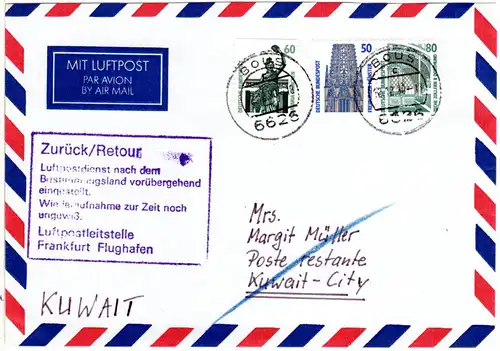 MIT LUFTPOST
PAR AVION
BY AIR MAIL
60
50
80
DEUTSCHE BUNDESPOST
BOUS
6626
BOUS
c
6626
Zurück/Retour
Luftpostdienst nach dem
Bestimmungsland vorübergehend
eingestellt.
Wiederaufnahme zur Zeit noch
ungewiß.
Luftpostleitstelle
Frankfurt Flughafen
Mrs.
Margit Müller
Poste restante
Kuwait-City
KUWAIT